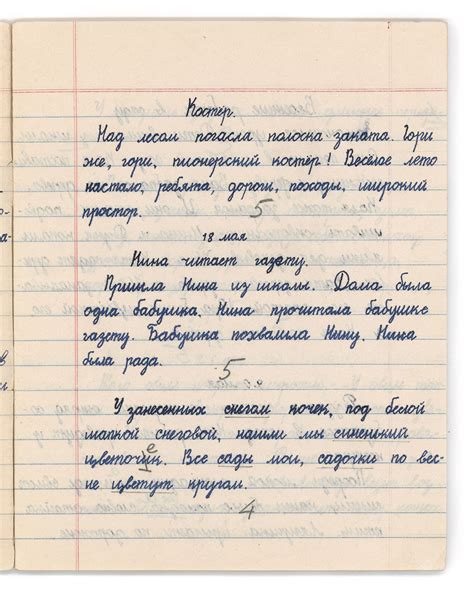 Костёр.
Над лесом погасла полоска заката. Гори
же, гори, пионерский костёр! Весёлое лето
настало, ребята, дороги, походы, широкий
простор.
5
18 мая
Нина читает газету.
Пришла Нина из школы. Дома была
одна бабушка. Нина прочитала бабушке
газету. Бабушка похвалила Нину. Нина
была рада.
5
У занесенных снегом кочек, Под белой
шапкой снеговой, нашли мы синенький
е
цветочик. Все сады мои, садочки по вес-
не цветут кругом.
4